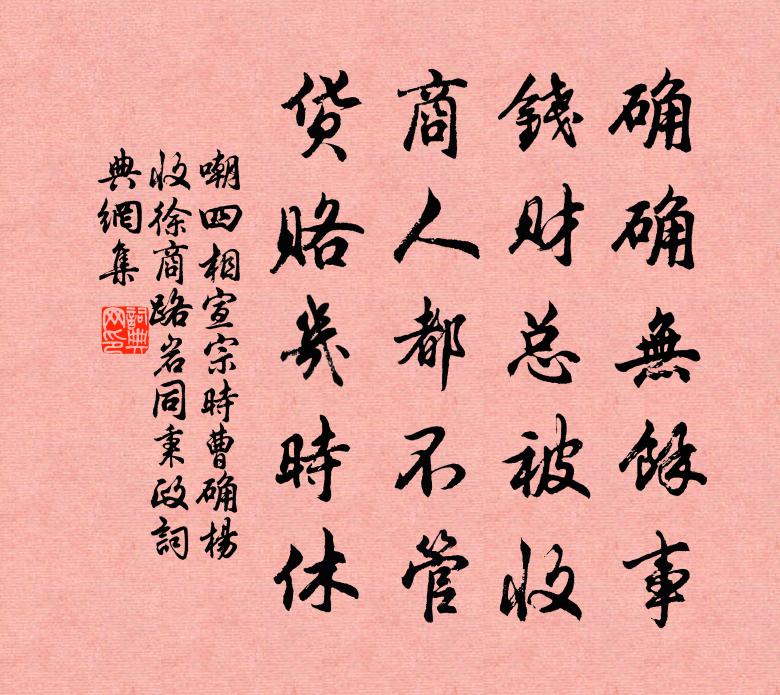 确确無餘事
錢财总被收
商人都不管
货賂幾時休
嘲四相宣宗時曹确楊
收徐商路岩同秉政詞
典網集
詞典
网印